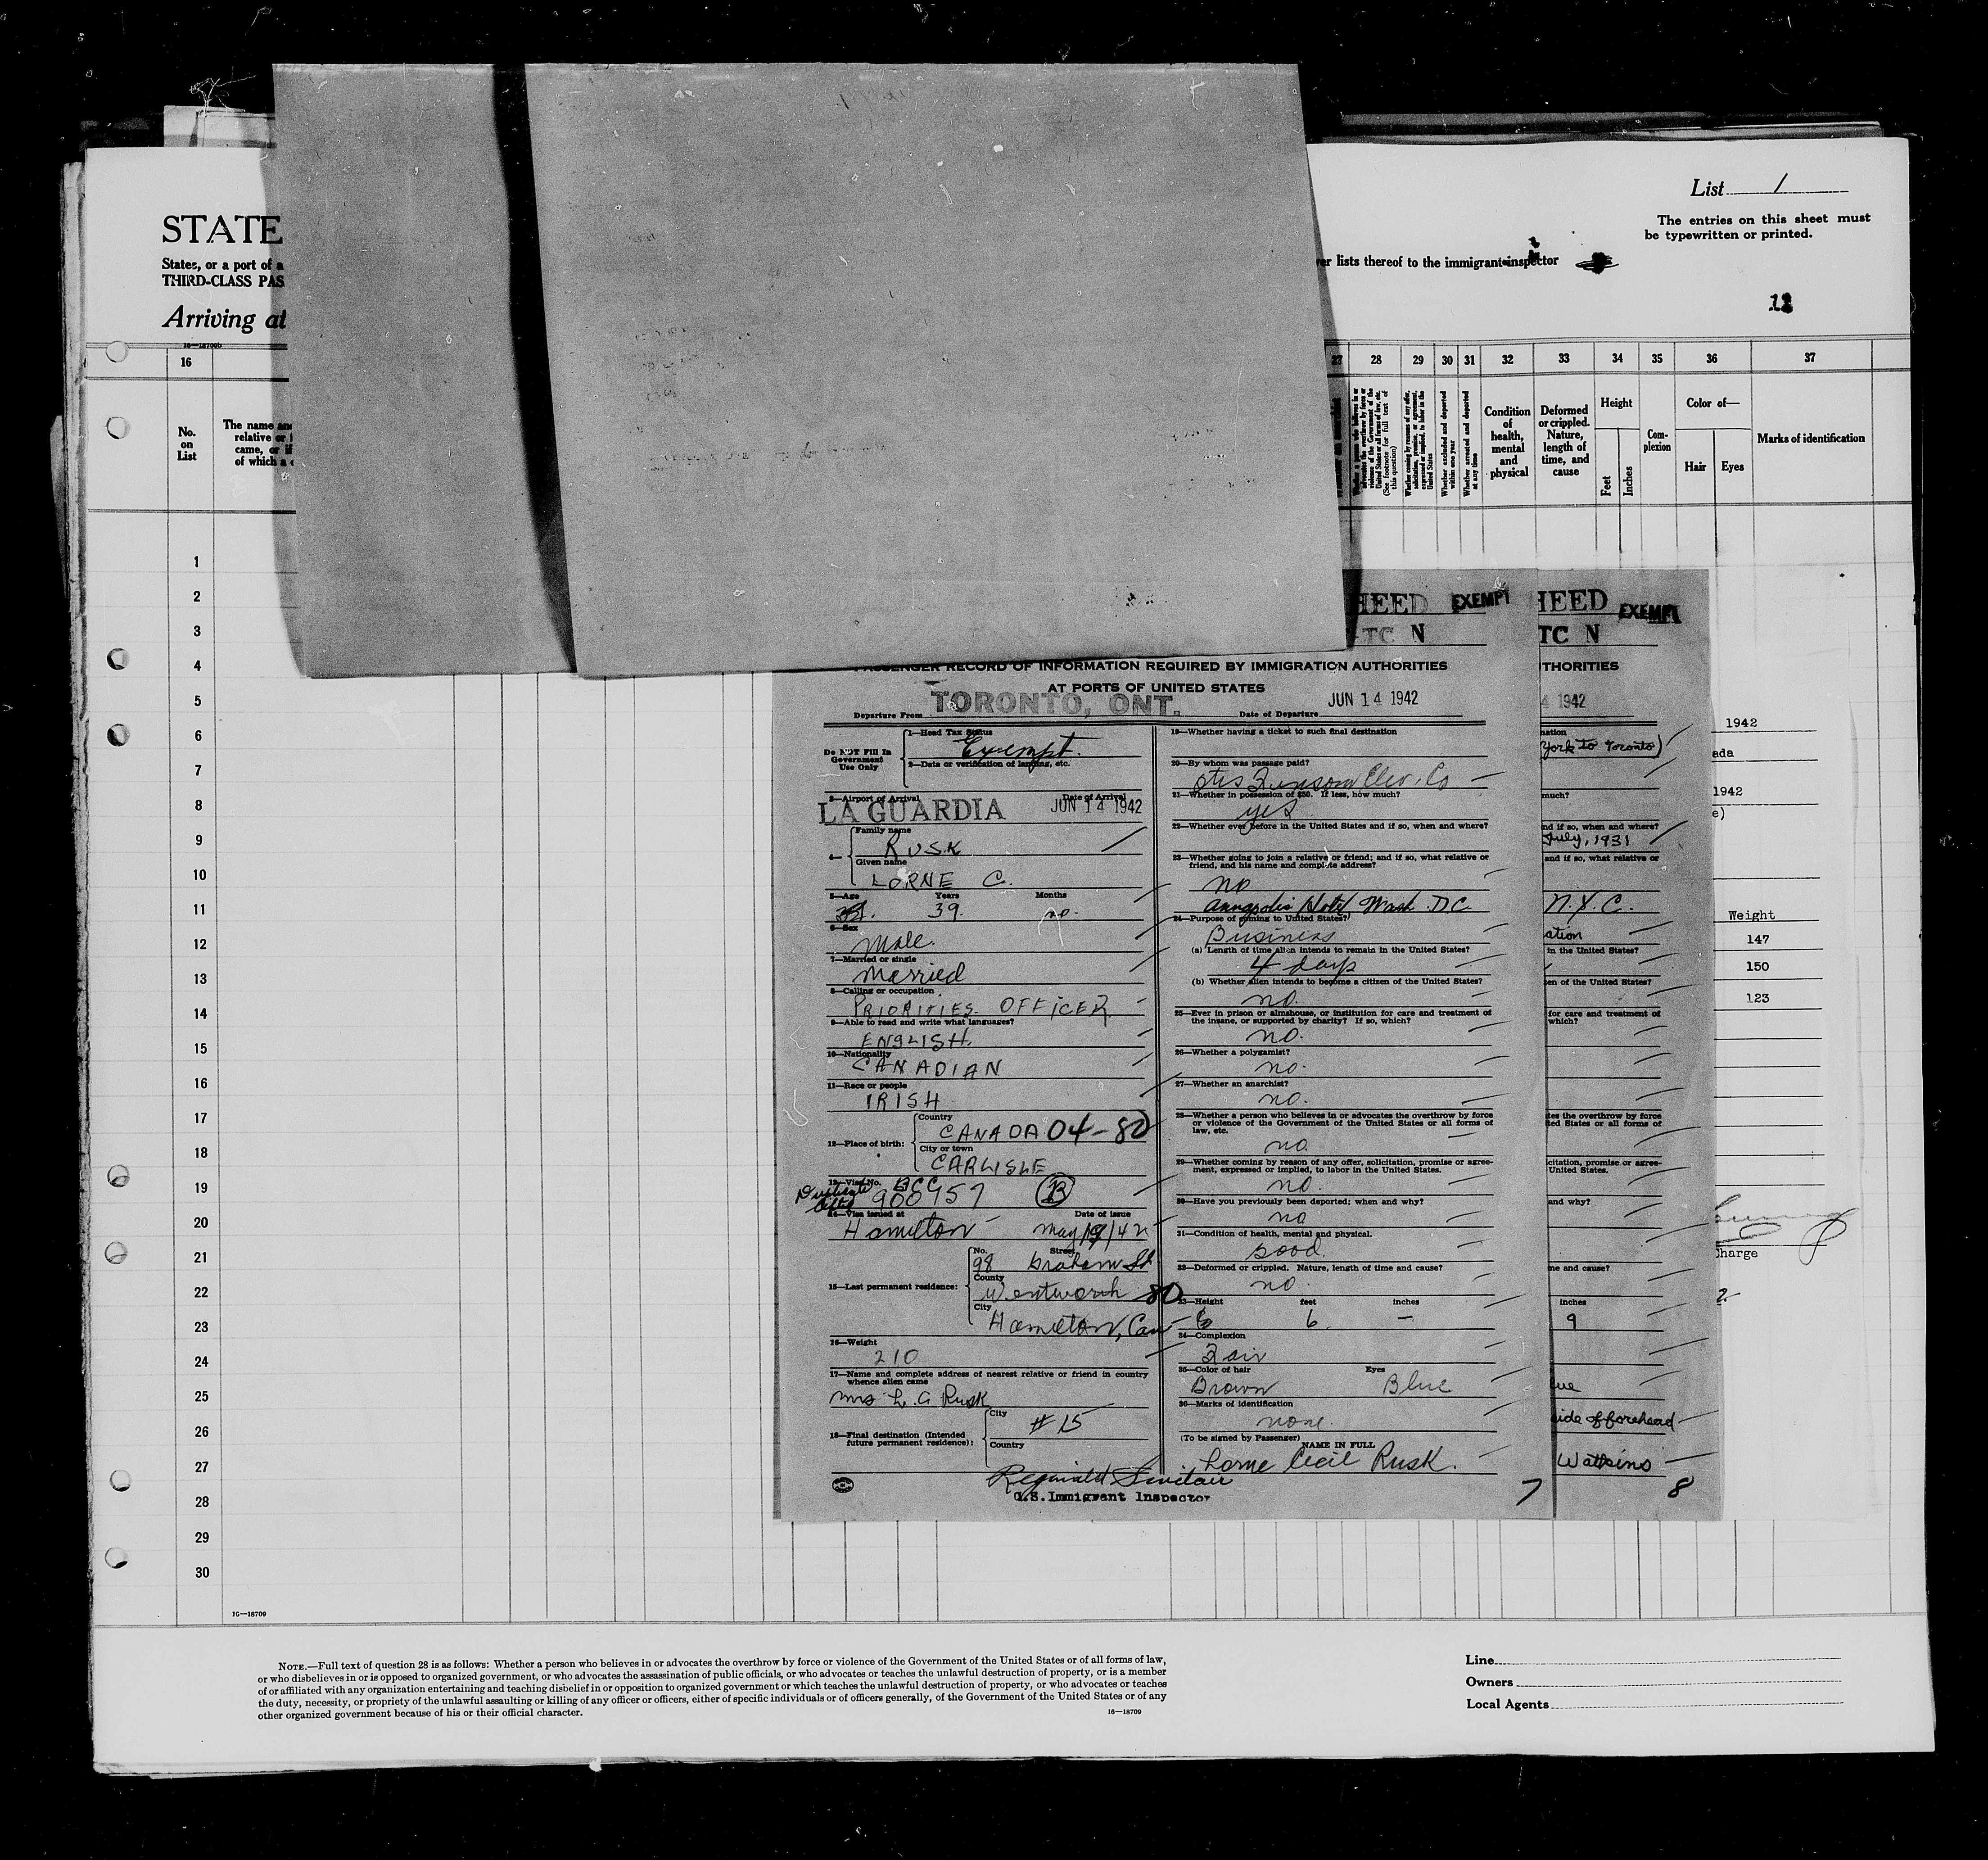 List 1
The entries on this sheet must
be typewritten or printed.
STATE
States, or a port of a
THIRD-CLASS PAS
Arriving at
er lists thereof to the immigrant inspector
16—18700b
16
27 28 29 30 31 32 33 34 35 36 37
No.
on
List
The name and
relative or
came, or if
of which a
Whether a person who believes in or
advocates the overthrow by force or
violence of the Government of the
United States or all forms of law, etc.
(See footnote for full text of
this question)
Whether coming by reason of any offer,
solicitation, promise, or agreement,
expressed or implied, to labor in the
United States
Whether excluded and deported
within one year
Whether arrested and deported
at any time
Condition
of
health,
mental
and
physical
Deformed
or crippled.
Nature,
length of
time, and
cause
Height
Feet
Inches
Com-
plexion
Color of—
Hair
Eyes
Marks of identification
1
2
3
4
5
6
7
8
9
10
11
12
13
14
15
16
17
18
19
20
21
22
23
24
25
26
27
28
29
30
HEED EXEMPT
TC N
PASSENGER RECORD OF INFORMATION REQUIRED BY IMMIGRATION AUTHORITIES
AT PORTS OF UNITED STATES
Departure From TORONTO, ONT. Date of Departure JUN 14 1942
Do NOT Fill In
Government
Use Only
1—Head Tax Status
Exempt.
2—Data or verification of landing, etc.
3—Airport of Arrival Date of Arrival
LA GUARDIA JUN 14 1942
4—
Family name
RUSK
Given name
LORNE C.
5—Age Years Months
39. no.
6—Sex
Male.
7—Married or single
Married
8—Calling or occupation
PRIORITIES OFFICER
9—Able to read and write what languages?
ENGLISH.
10—Nationality
CANADIAN
11—Race or people
IRISH
12—Place of birth:
Country
CANADA 04-80
City or town
CARLISLE
13—Visa No. BCC
Duplicate
900957 B
14—Visa issued at Date of issue
Hamilton May/19/42
15—Last permanent residence:
No. Street
98 Graham St
County
Wentworth 80
City
Hamilton, Can
16—Weight
210
17—Name and complete address of nearest relative or friend in country
whence alien came
Mrs L. C. Rusk
18—Final destination (Intended
future permanent residence):
City
#15
Country
Reginald Sinclair
U.S. Immigrant Inspector
19—Whether having a ticket to such final destination
20—By whom was passage paid?
Otis Fensom Elev. Co
21—Whether in possession of $50. If less, how much?
yes
22—Whether ever before in the United States and if so, when and where?
23—Whether going to join a relative or friend; and if so, what relative or
friend, and his name and complete address?
no
Annapolis Hotel Wash. D.C.
24—Purpose of coming to United States?
Business
(a) Length of time alien intends to remain in the United States?
4 days
(b) Whether alien intends to become a citizen of the United States?
no.
25—Ever in prison or almshouse, or institution for care and treatment of
the insane, or supported by charity? If so, which?
no.
26—Whether a polygamist?
no.
27—Whether an anarchist?
no.
28—Whether a person who believes in or advocates the overthrow by force
or violence of the Government of the United States or all forms of
law, etc.
no.
29—Whether coming by reason of any offer, solicitation, promise or agree-
ment, expressed or implied, to labor in the United States.
no.
30—Have you previously been deported; when and why?
no
31—Condition of health, mental and physical.
good.
32—Deformed or crippled. Nature, length of time and cause?
no.
33—Height feet inches
6. —
34—Complexion
Fair
35—Color of hair Eyes
Brown Blue
36—Marks of identification
none.
(To be signed by Passenger)
NAME IN FULL
Lorne Cecil Rusk.
7
HEED EXEMPT
TC N
THORITIES
4 1942
nation
York to Toronto)
much?
nd if so, when and where?
July, 1931
and if so, what relative or
N.Y.C.
ation
in the United States?
en of the United States?
for care and treatment of
which?
tes the overthrow by force
ted States or all forms of
citation, promise or agree-
United States.
and why?
me and cause?
inches
9
ue
side of forehead
Watkins
8
1942
ada
1942
e)
Weight
147
150
123
Charge
16—18709
NOTE.—Full text of question 28 is as follows: Whether a person who believes in or advocates the overthrow by force or violence of the Government of the United States or of all forms of law,
or who disbelieves in or is opposed to organized government, or who advocates the assassination of public officials, or who advocates or teaches the unlawful destruction of property, or is a member
of or affiliated with any organization entertaining and teaching disbelief in or opposition to organized government or which teaches the unlawful destruction of property, or who advocates or teaches
the duty, necessity, or propriety of the unlawful assaulting or killing of any officer or officers, either of specific individuals or of officers generally, of the Government of the United States or of any
other organized government because of his or their official character.
16—18709
Line
Owners
Local Agents